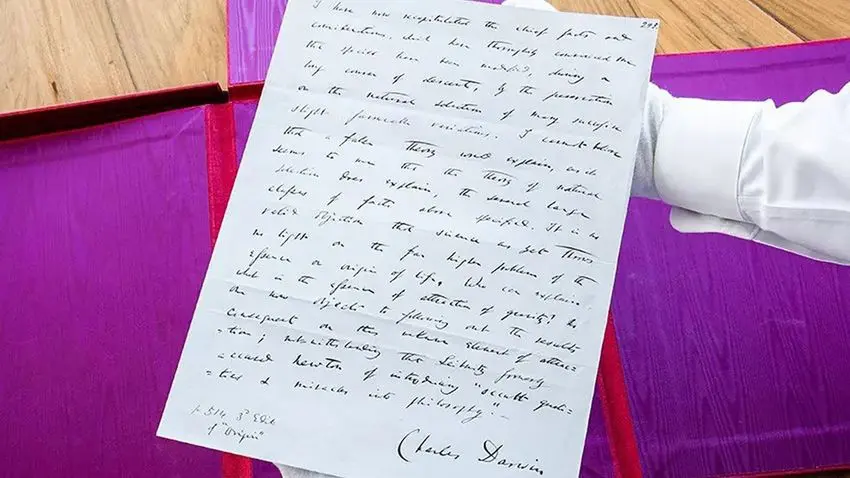 I have now recapitulated the chief facts and
considerations, which have thoroughly convinced me
that species have been modified, during a
long course of descent, by the preservation
or the natural selection of many successive
slight favourable variations. I cannot believe
that a false theory would explain, as it
seems to me that the theory of natural
selection does explain, the several large
classes of facts above specified. It is no
valid objection that science as yet throws
no light on the far higher problem of the
essence or origin of life. Who can explain
what is the essence of attraction of gravity? No
one now objects to following out the results
consequent on this unknown element of attrac-
-tion; notwithstanding that Leibnitz formerly
accused Newton of introducing "occult quali-
-ties & miracles into philosophy".—
p. 514 3d Edit
of "Origin"
Charles Darwin